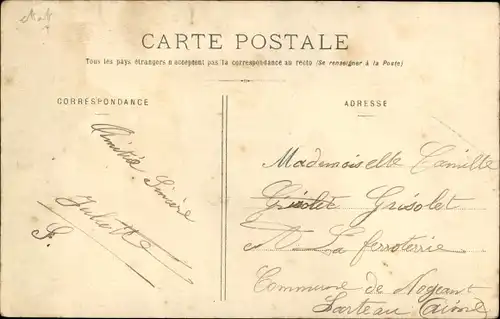 CARTE POSTALE
Tous les pays étrangers n'acceptent pas la correspondance au recto (Se renseigner à la Poste)
CORRESPONDANCE
ADRESSE
Amitié Sincère
Juliette
S.
Mademoiselle Camille
Grisolet Grisolet
La ferroterrie
Commune de Nogeant
Larteau Aisne